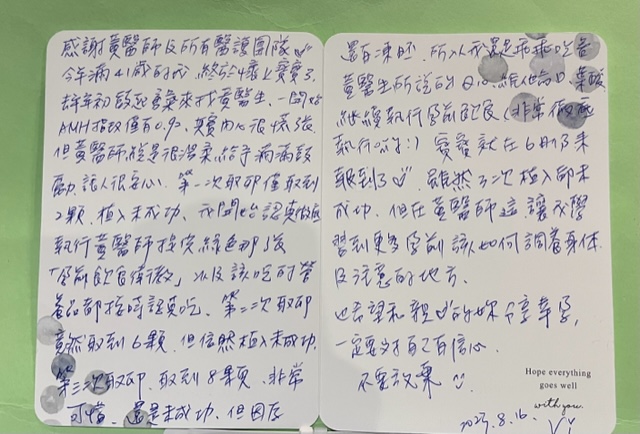 感謝黃醫師及所有醫護團隊
今年滿41歲的我,終於懷上寶寶了
去年初鼓起勇氣來找黃醫生,一開始
AMH指數僅有0.9,其實內心很慌張
但黃醫師總是很溫柔給予滿滿鼓
勵,讓人很安心。第一次取卵僅取到
2顆,植入未成功,我開始認真徹底
執行黃醫師提供綠色那張
「孕前飲食衛教」以及該吃的營
養品都按時認真吃,第二次取卵
竟然取到6顆,但依然植入未成功,
第三次取卵,取到8顆,非常
可惜,還是未成功,但因有
還有凍胚,所以我還是乖乖吃著
黃醫生所說的Q10、維他命D、葉酸
繼續執行孕前飲食(非常徹底
執行 !)寶寶就在6月份來
報到了 雖然3次植入卵未
成功,但在黃醫師這讓我學
習到更多孕前該如何調養身體
及注意的地方。
也希望和親 的妳分享幸孕,
一定要對自己有信心
不要放棄
Hope everything
goes well
with you.
2023.8.16.